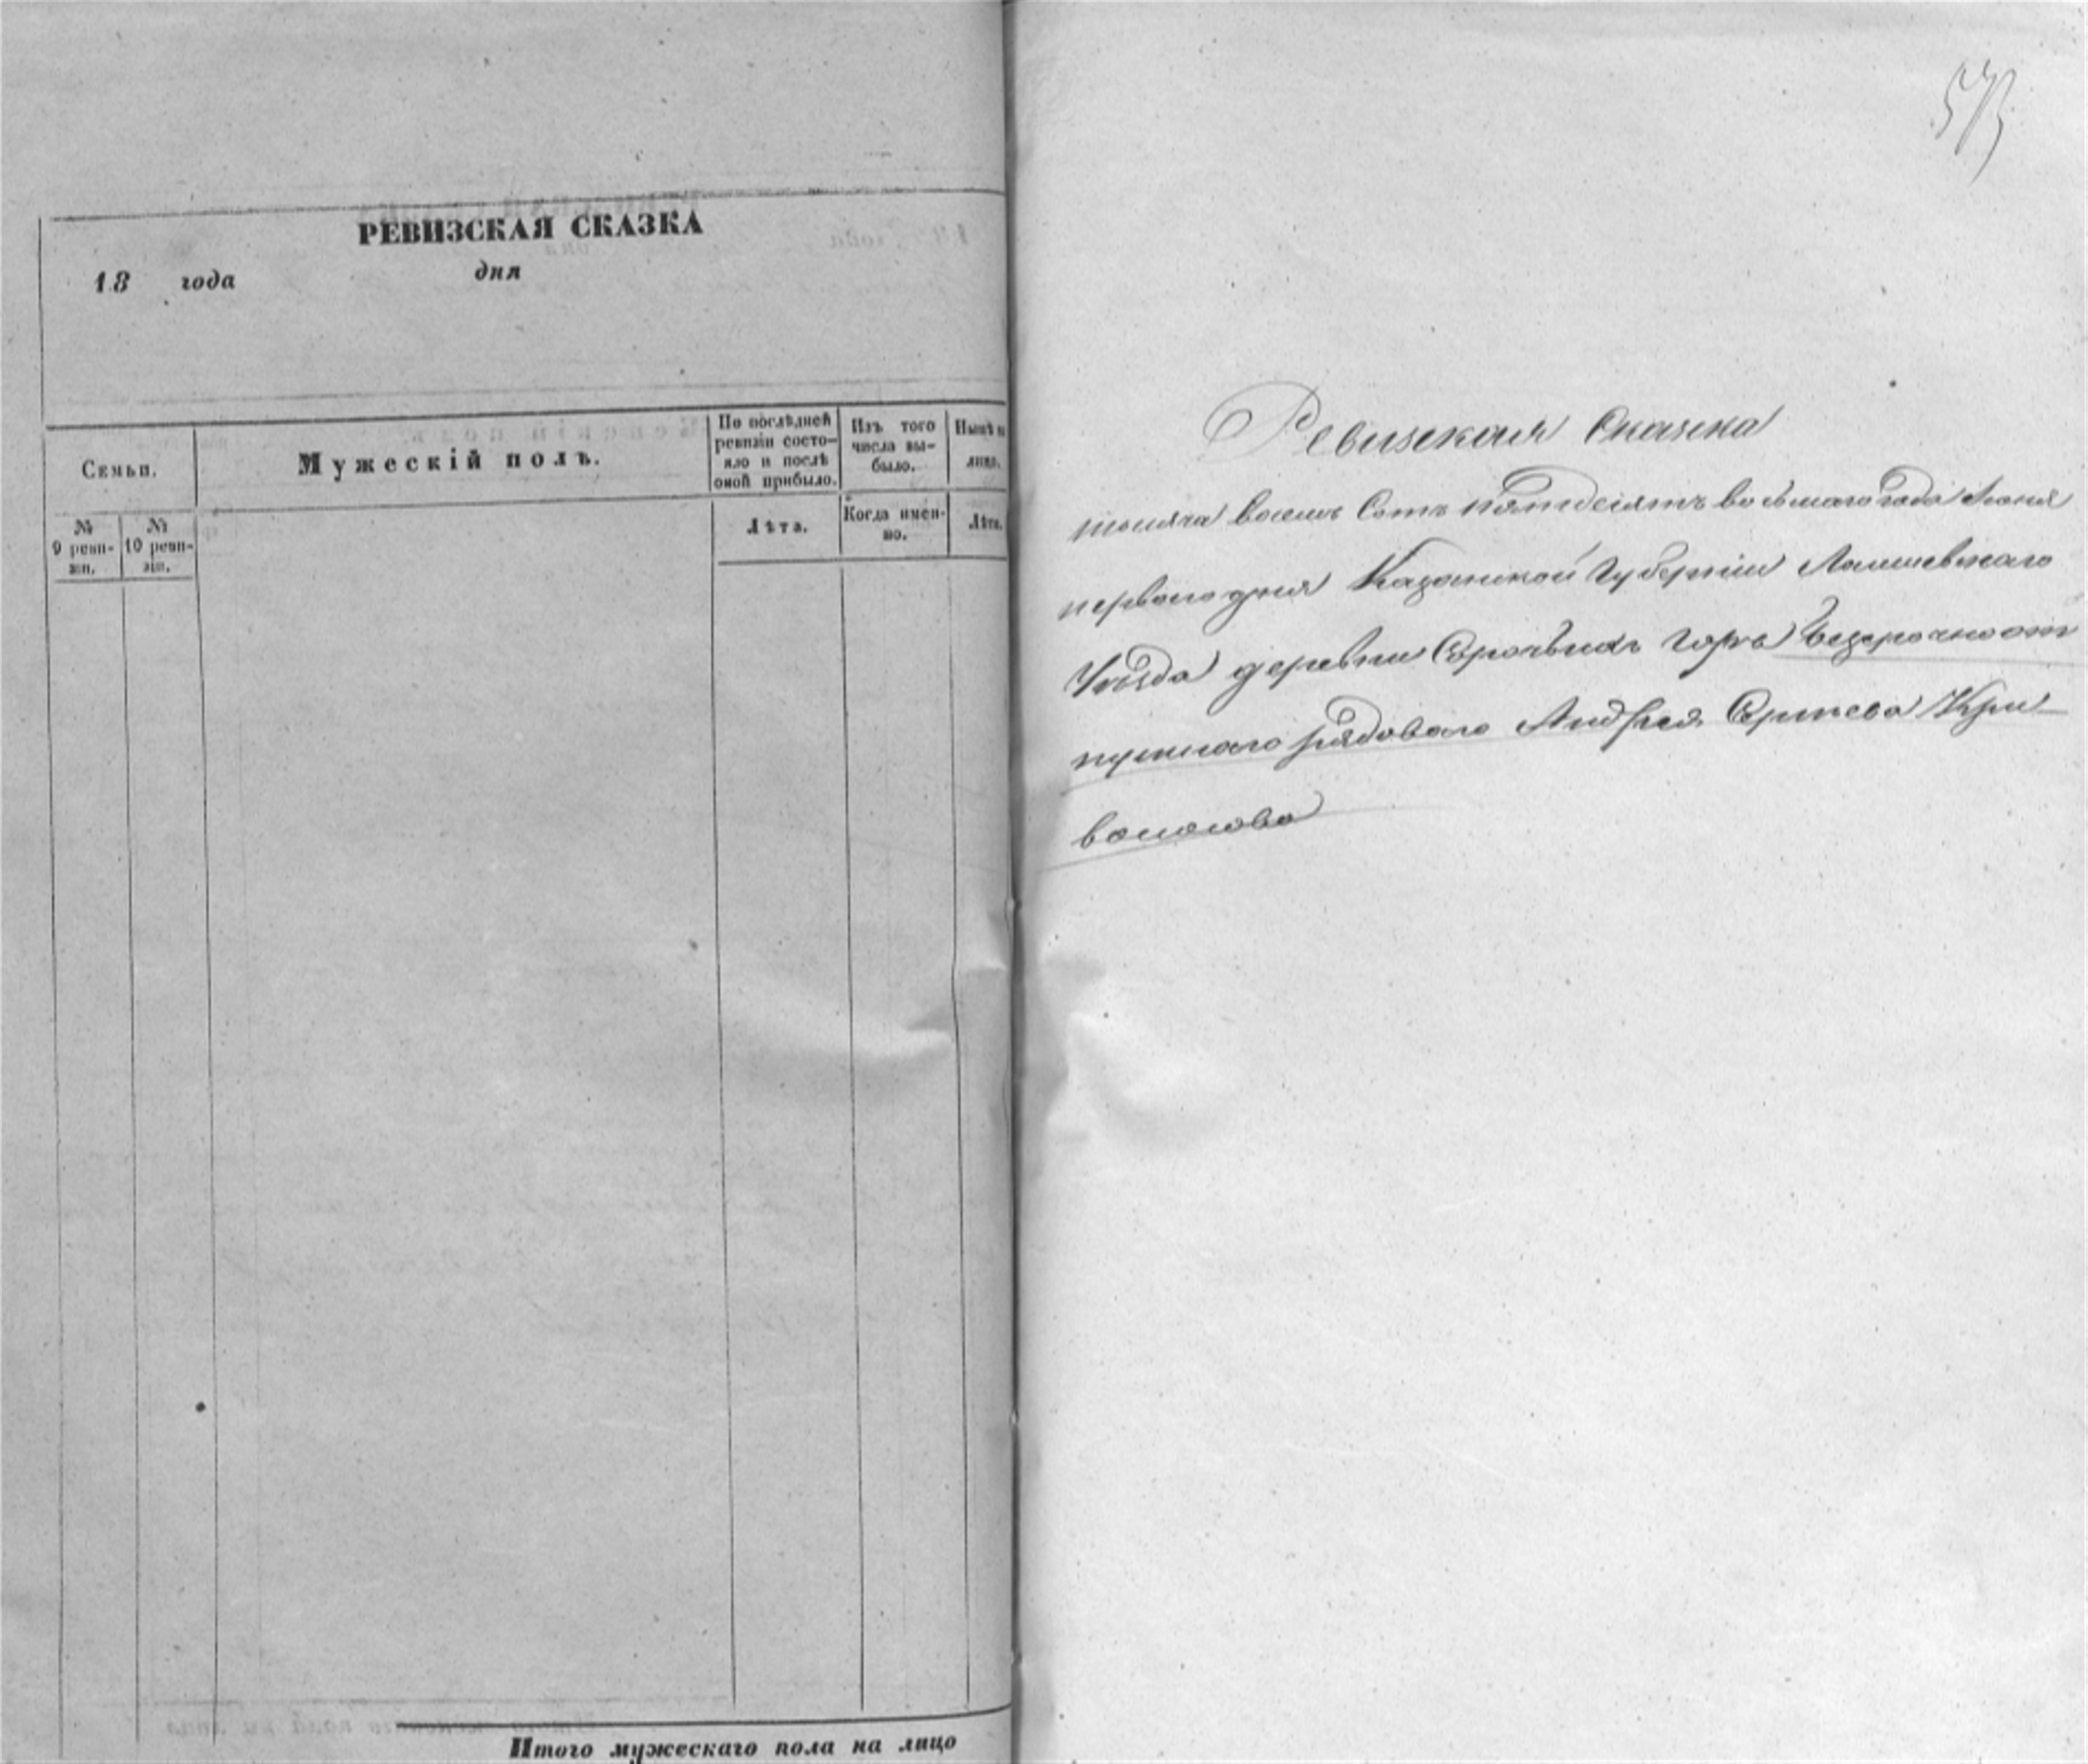 РЕВИЗСКАЯ СКАЗКА
18 года дня
Семьи.
Мужескій полъ.
По послѣдней
ревизіи состо-
яло и послѣ
оной прибыло.
Изъ того
числа вы-
было.
Нынѣ н
лицо.
№
9 реви-
зіи.
№
10 реви-
зіи.
Лѣта.
Когда имен-
но.
Лѣта.
Итого мужескаго пола на лицо
573
Ревизская Сказка
тысяча восемь сотъ пятдесятъ восьмаго года Июня
перваго дня Казанской Губерніи Лаишевскаго
Уѣзда деревни Сорочьихъ горъ безсрочноот
пускнаго рядоваго Андрея Сергѣева Кри-